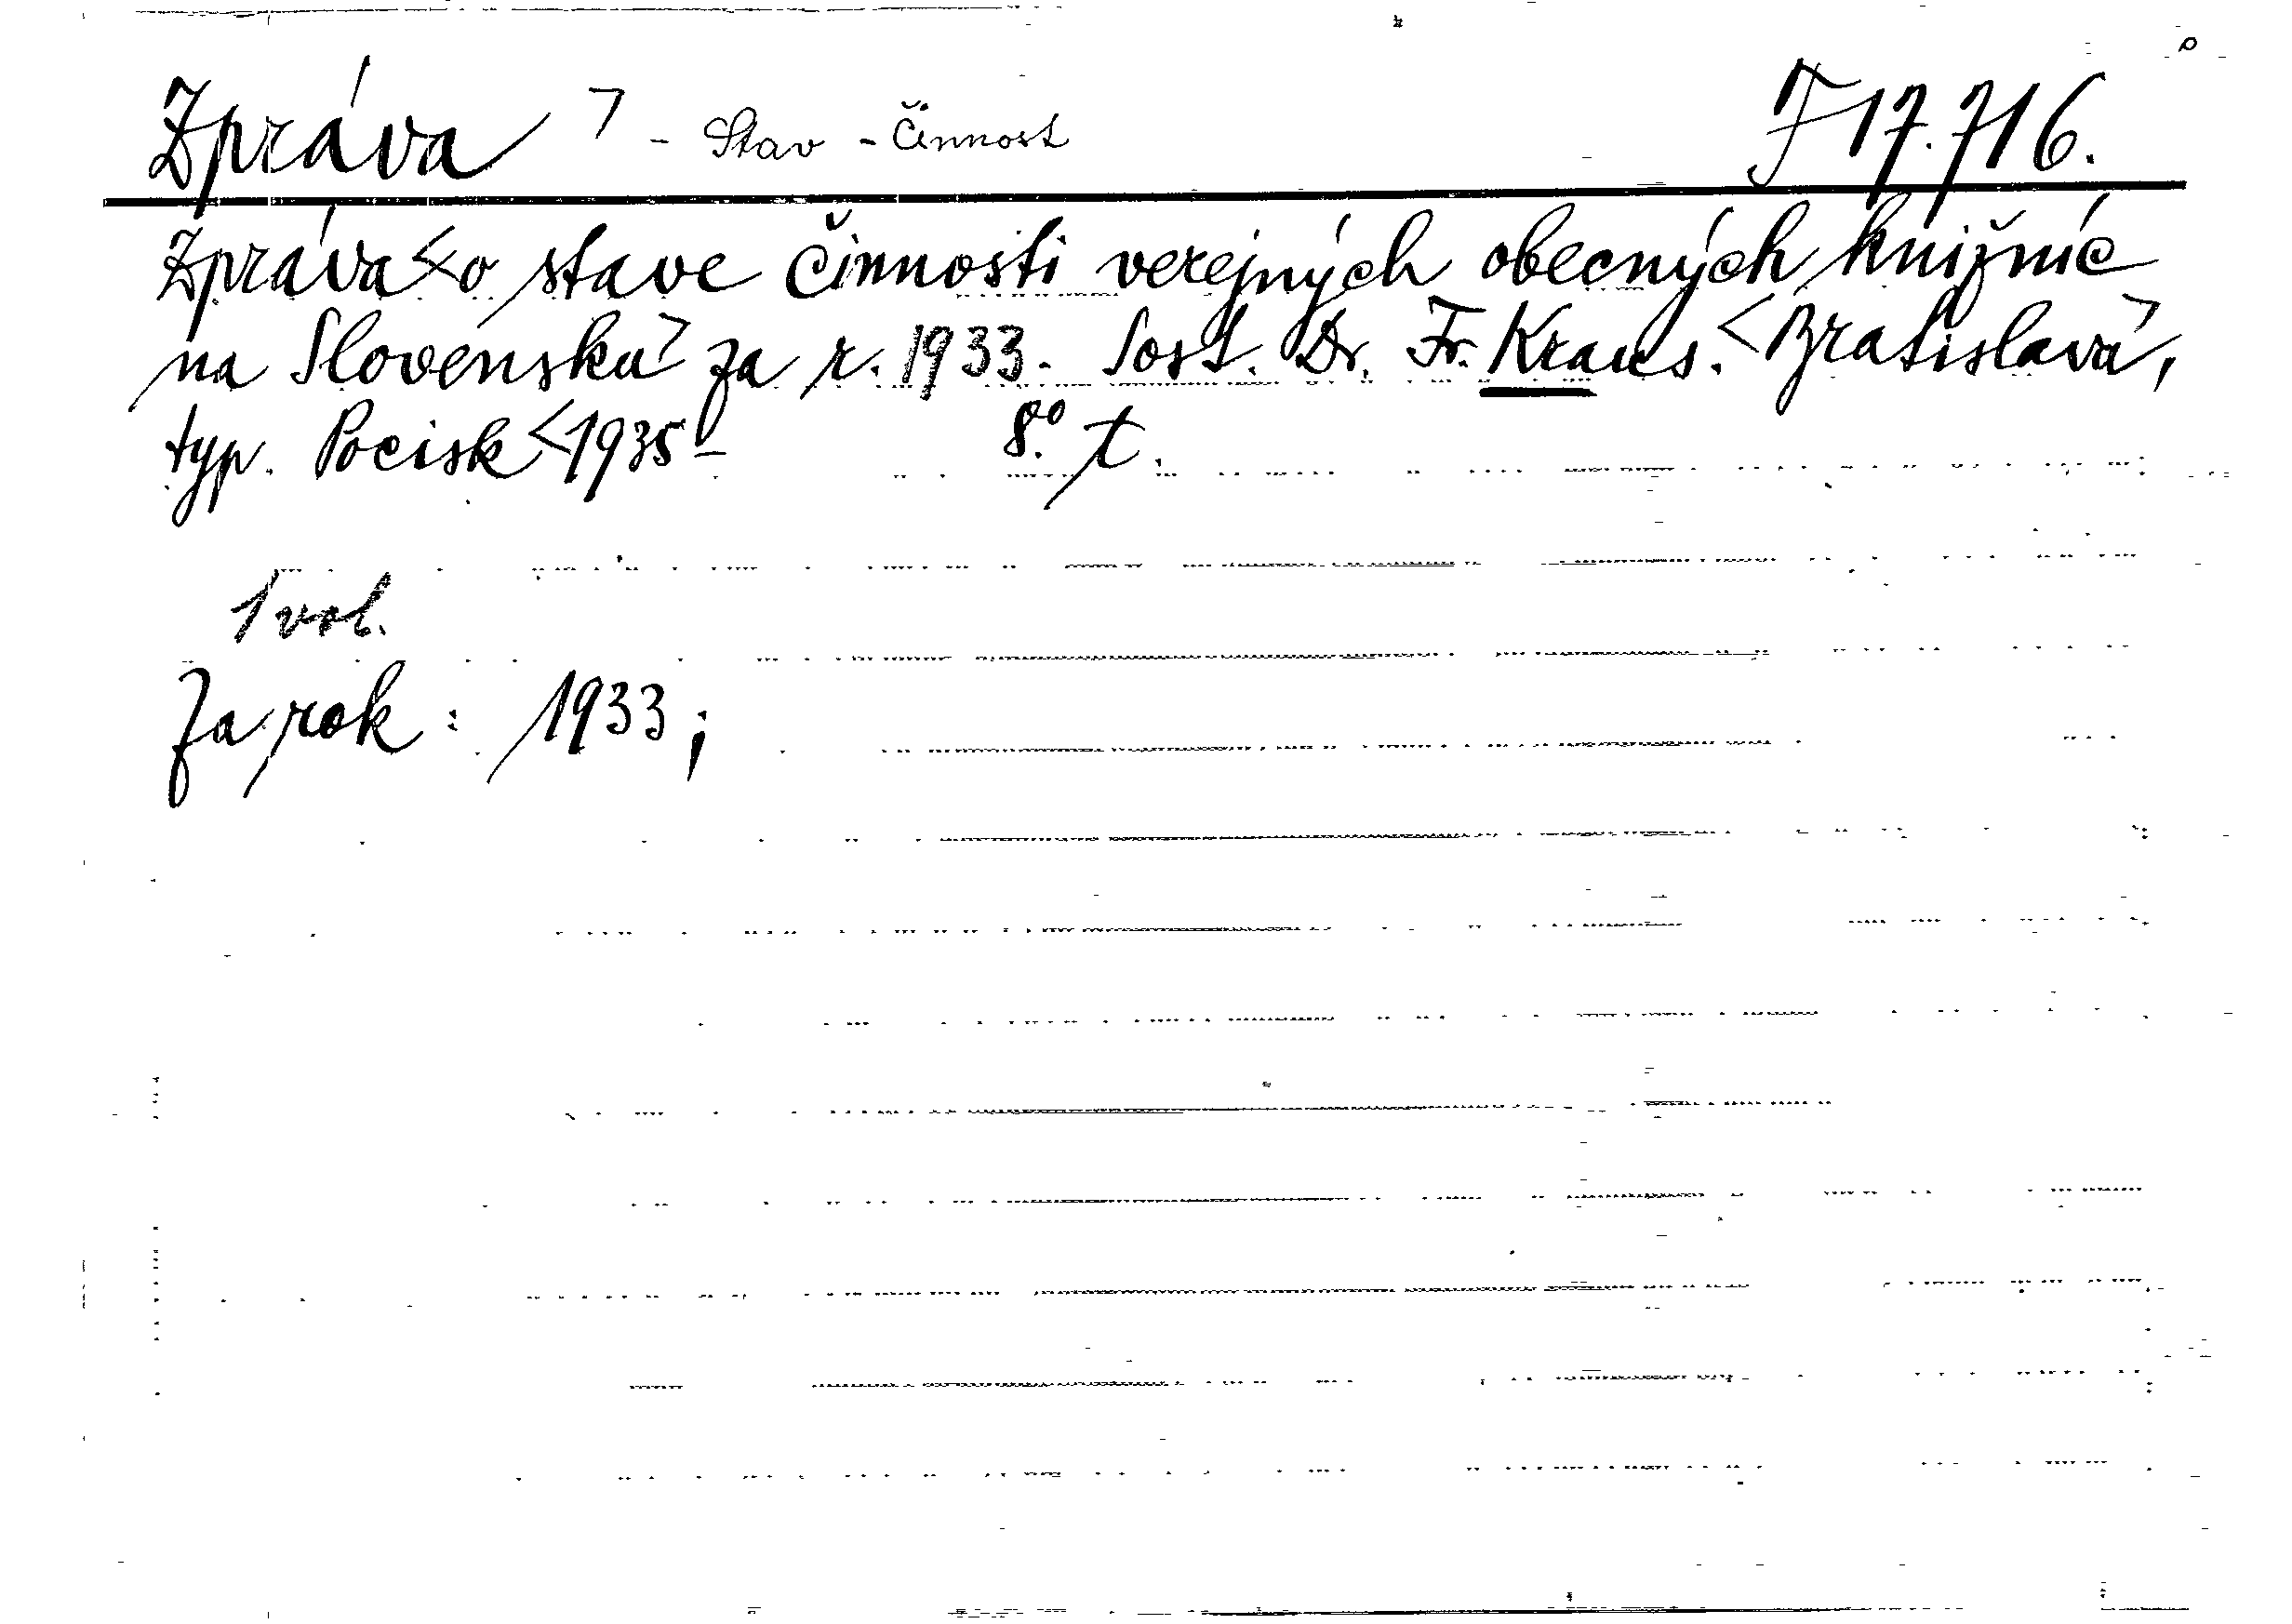 Zpráva > - Stav - Činnost J 17.716.
Zpráva < o stave činnosti verejných obecných knižníc
na Slovensku > za r. 1933. Sost. Dr. Fr. Kraus. < Bratislava >,
typ. Pocisk < 1935 - 8° t.
1 vol.
Za rok : 1933 ;